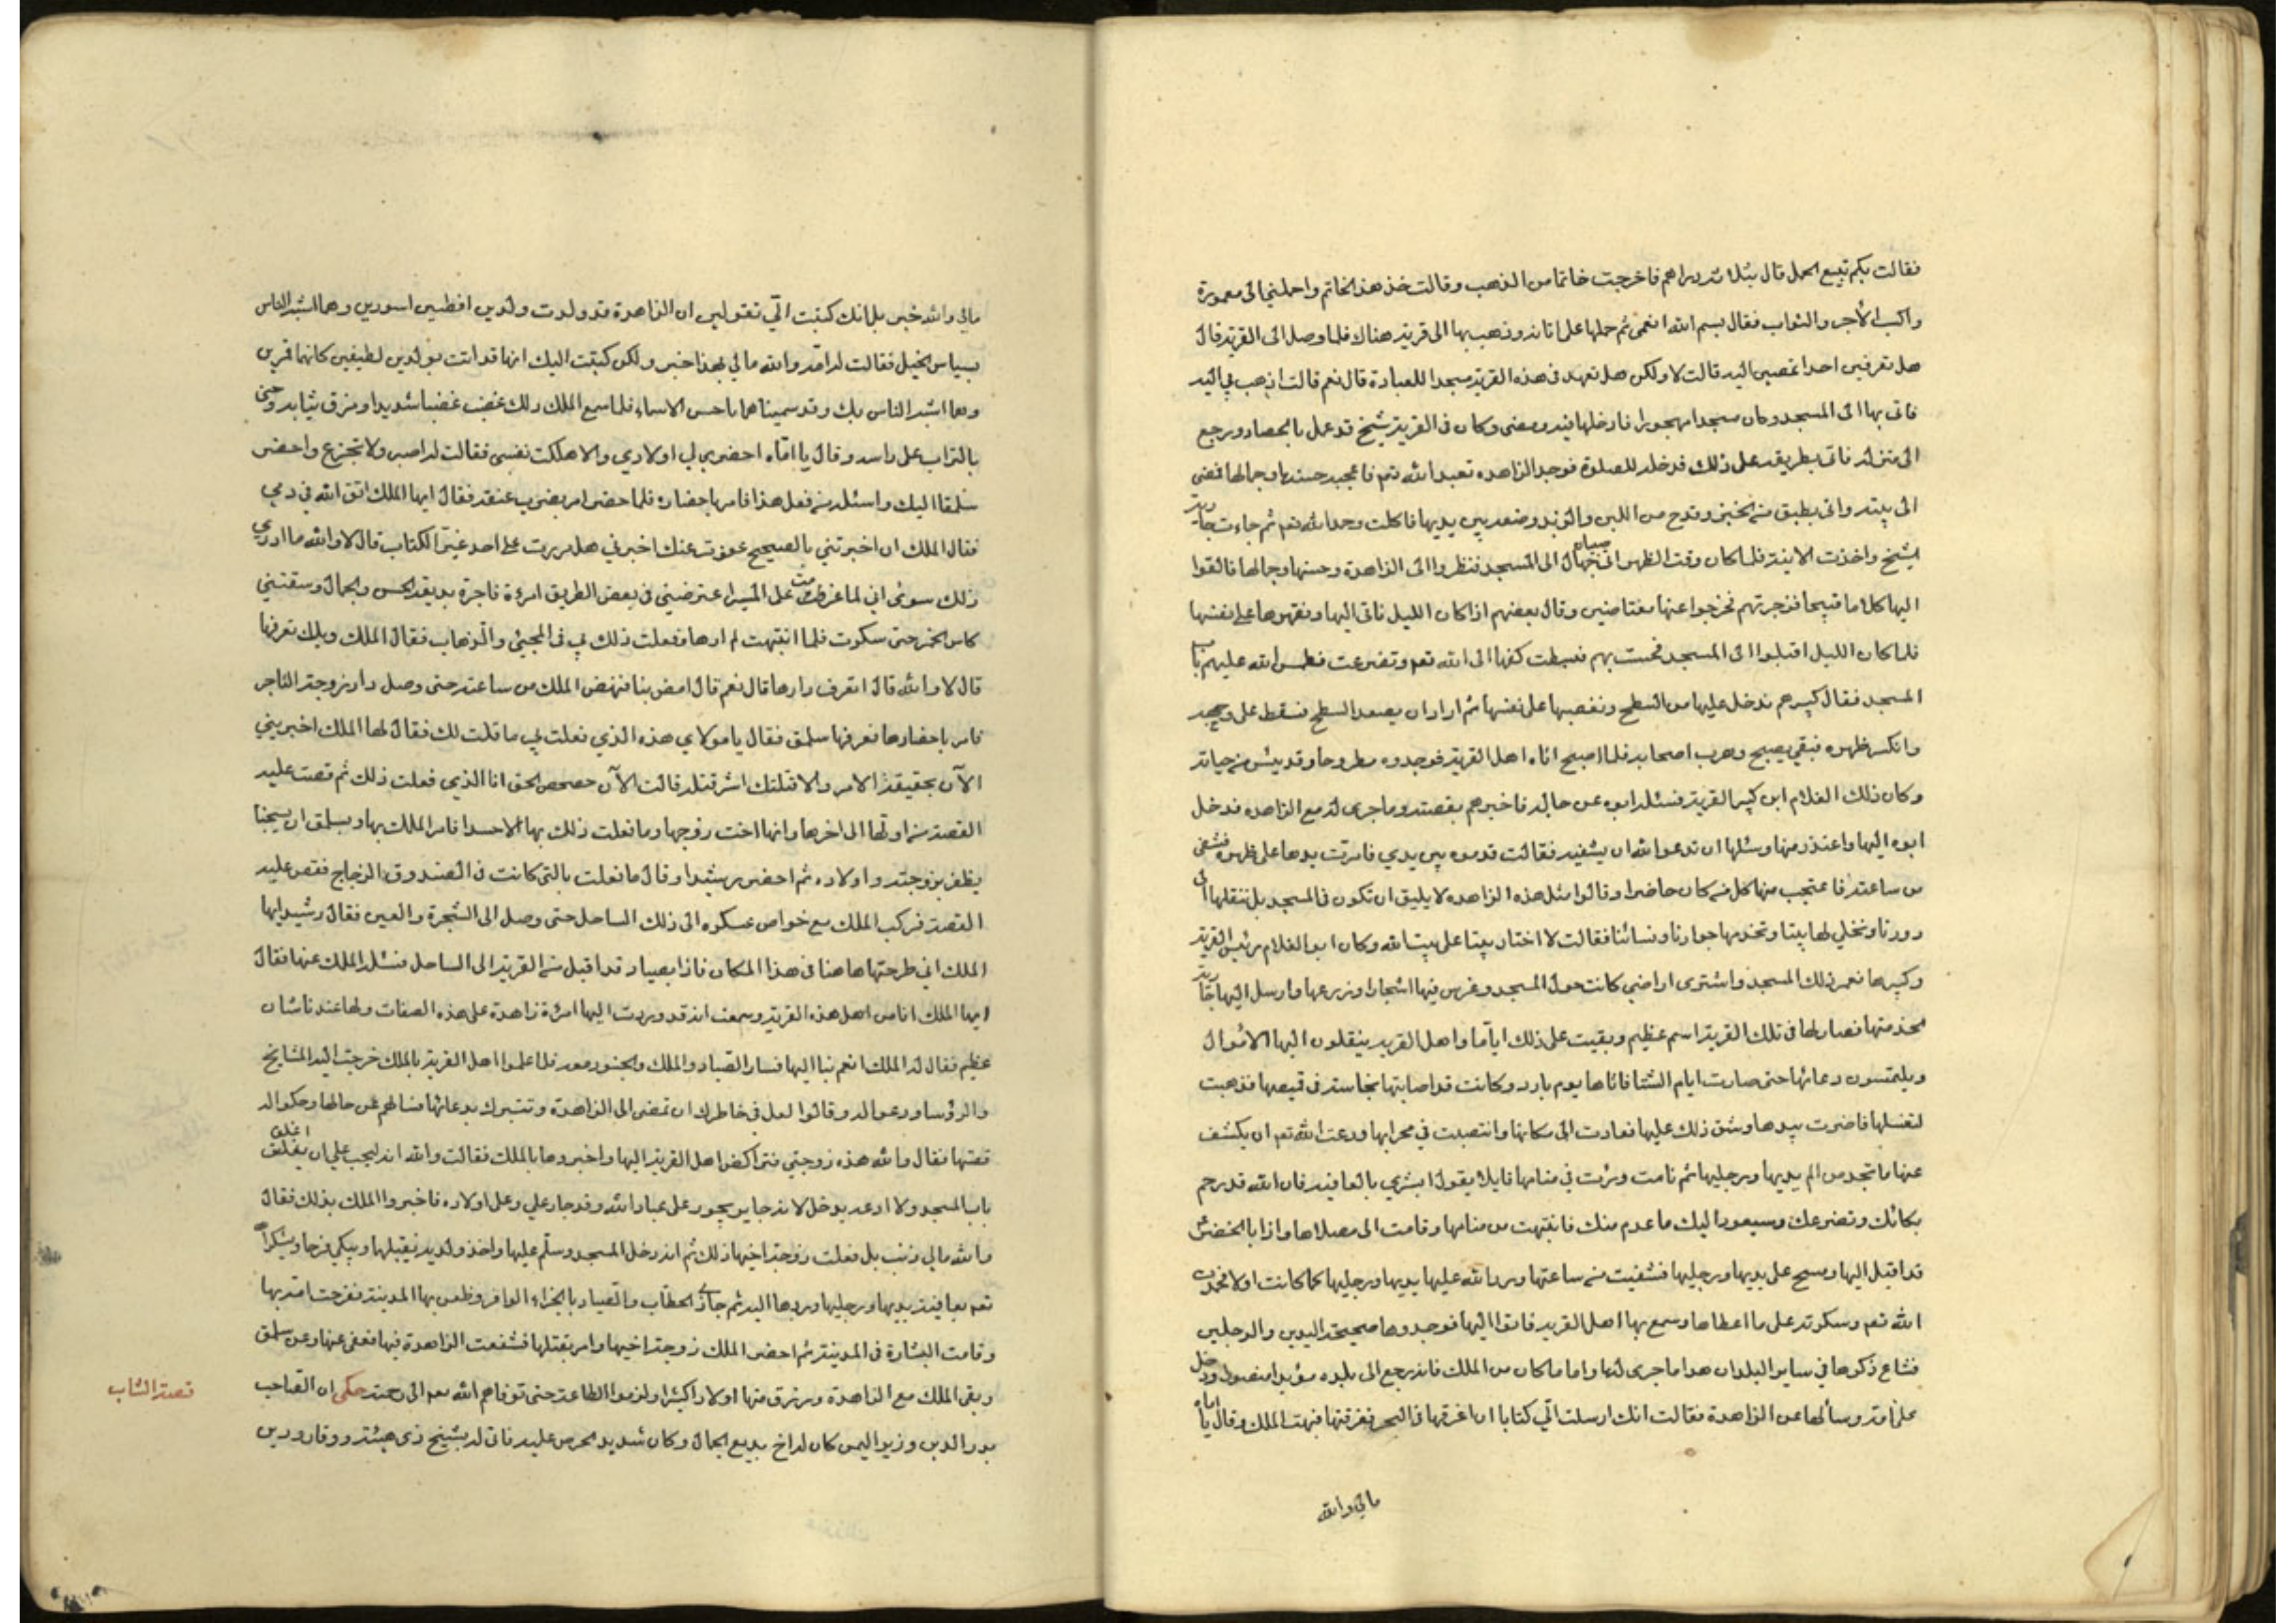 فقالت بكم تبيع الحمل قال بثلاثة دراهم فاخرجت خاتما من الذهب وقالت خذ هذا الخاتم واحملني الى معمورة
واكسب الأجر والثواب فقال بسم الله انعمي ثم حملها على اتانه وذهب بها الى قرية هناك فلما وصل الى القرية قال
هل تعرفين احدا تمضين اليه قالت لا ولكن هل تعهد في هذه القرية مسجدا للعبادة قال نعم قالت اذهب بي اليه
فاتى بها الى المسجد وكان مسجدا مهجورا فادخلها فيه ومضى وكان في القرية شيخ قد عمل بالحصاد ورجع
الى منزله فاتى بطريقه على ذلك فدخله للصلوة فوجد الزاهدة تعبد الله تعم فاعجبه حسنها وجمالها فمضى
الى بيته واتى بطبق من الخبز وقدح من اللبن والزبد وضعه بين يديها فاكلت وحمد الله تعم ثم جاءت جارية
الشيخ واخذت الانية فلما كان وقت الظهر اتى جهال الى المسجد فنظروا الى الزاهدة وحسنها وجمالها فالقوا
اليها كلاما قبيحا فزجرتهم فخرجوا عنها مغتاضين وقال بعضهم اذا كان الليل ناتى اليها ونقهرها على نفسها
فلما كان الليل اقبلوا الى المسجد فحست بهم فبسطت كفها الى الله تعم وتضرعت فطمس الله عليهم باب
المسجد فقال كبيرهم ندخل عليها من السطح ونغصبها على نفسها ثم اراد ان يصعد السطح فسقط على وجهه
وانكسر ظهره فبقي يصيح وهرب اصحابه فلما اصبح اتاه اهل القرية فوجدوه مطروحا وقد يئس من حياته
وكان ذلك الغلام ابن كبير القرية فسئله ابوه عن حاله فاخبرهم بقصته وما جرى له مع الزاهدة فدخل
ابوه اليها واعتذر منها وسئلها ان تدعو الله ان يشفيه فقالت قدموه بين يدي فامرّت يدها على ظهره فشفى
من ساعته فاعتجب منها كل من كان حاضرا وقالوا مثل هذه الزاهدة لا يليق ان تكون في المسجد بل ننقلها الى
دورنا ونخلي لها بيتا وتخدمها جوارنا ونسائنا فقالت لا اختار بيتا على بيت الله وكان ابو الغلام رئيس القرية
وكبيرها فعمر ذلك المسجد واشترى اراضي كانت حول المسجد وغرس فيها اشجارا وزرعها وارسل اليها جارية
لخدمتها فصار لها في تلك القرية اسم عظيم وبقيت على ذلك اياما واهل القرية ينقلون اليها الاموال
ويلتمسون دعائها حتى صارت ايام الشتا فاتاها يوم بارد وكانت قد اصابتها نجاسة في قميصها فذهبت
لتغسلها فاضرت بيدها وشق ذلك عليها فعادت الى مكانها وانتصبت في محرابها ودعت الله تعم ان يكشف
عنها ما تجد من الم يديها ورجليها ثم نامت ورئت في منامها قايلا يقول ابشري بالعافية فان الله قد رحم
بكائك وتضرعك وسيعود اليك ما عدم منك فانتبهت من منامها وقامت الى مصلاها واذا بالخضر
قد اقبل اليها ومسح على يديها ورجليها فشفيت من ساعتها ورد الله عليها يديها ورجليها كما كانت اولا فحمدت
الله تعم وشكرته على ما اعطاها وسمع بها اهل القرية فاتوا اليها فوجدوها صحيحة اليدين والرجلين
فشاع ذكرها في ساير البلدان هذا ما جرى لها واما ما كان من الملك فانه رجع الى بلده مؤيدا منصورا ودخل
على امه وسألها عن الزاهدة فقالت انك ارسلت الّي كتابا ان اغرقها في البحر فغرقتها فبهت الملك وقال يا اماه
مالي والله
مالي والله خبر بل انك كتبت الّي تقولين ان الزاهدة قد ولدت ولدين افطسين اسودين وهما اشبه الناس
بسياس الخيل فقالت له امه والله مالي بهذا خبر ولكن كتبت اليك انها قد اتت بولدين لطيفين كانهما قمرين
وهما اشبه الناس بك وقد سميناهما باحسن الاسماء فلما سمع الملك ذلك غضب غضبا شديدا ومزق ثيابه وحثى
بالتراب على راسه وقال يا اماه احضري لي اولادي والا هلكت نفسي فقالت له اصبر ولا تجزع واحضر
سلمقا اليك واسئله من فعل هذا فامر باحضاره فلما حضر امر بضرب عنقه فقال ايها الملك اتق الله في دمي
فقال الملك ان اخبرتني بالصحيح عفوت عنك اخبرني هل مررت على احد غير الكتاب قال لا والله ما ادري
ذلك سوى اني لما عزمت على المسير اعترضتني في بعض الطريق امرءة فاجرة بديعة الحسن والجمال وسقتني
كاس الخمر حتى سكرت فلما انتبهت لم ارها ففعلت ذلك بي في المجيئ والذهاب فقال الملك ويلك تعرفها
قال لا والله قال اتعرف دارها قال نعم قال امض بنا فنهض الملك من ساعته حتى وصل دار زوجة التاجر
فامر باحضارها فعرفها سلمق فقال يا مولاي هذه الذي فعلت بي ما قلت لك فقال لها الملك اخبريني
الآن بحقيقة الامر والا قتلتك اشر قتلة قالت الآن حصحص الحق انا الذي فعلت ذلك ثم قصت عليه
القصة من اولها الى اخرها وانها اخت زوجها وما فعلت ذلك بها الا حسدا فامر الملك بها وبسلمق ان يسجنا
يظفر بزوجته واولاده ثم احضر رشيدا وقال ما فعلت بالتي كانت في الصندوق الزجاج فقص عليه
القصة فركب الملك مع خواص عسكره الى ذلك الساحل حتى وصل الى الشجرة والعين فقال رشيد ايها
الملك اني طرحتها هاهنا في هذا المكان فاذا بصياد قد اقبل من القرية الى الساحل فسئله الملك عنها فقال
ايها الملك انا من اهل هذه القرية وسمعت انه قد وردت اليها امرئة زاهدة على هذه الصفات ولها عندنا شان
عظيم فقال له الملك انعم بنا اليها فسار الصياد والملك والجنود معه فلما علموا اهل القرية بالملك خرجت اليه المشايخ
والرؤسا ودعوا له وقالوا لعل في خاطرك ان تمضى الى الزاهدة وتتبرك بدعائها فسالهم عن حالها وحكوا له
اغلق
قصتها فقال والله هذه زوجتي فتراكضوا اهل القرية اليها واخبروها بالملك فقالت والله انه ليجب علي ان يغلق
باب المسجد ولا ادعه يدخل لانه جاير يجور على عباد الله وقد جار علي وعلى اولاده فاخبروا الملك بذلك فقال
والله مالي ذنب بل فعلت زوجة اخيها ذلك ثم انه دخل المسجد وسلّم عليها واخذ ولديه يقبلها ويبكي فرحا وشكر الله
تعم بعافية يديها ورجليها وردها اليه ثم جازى الحطّاب والصياد بالجزاء الوافر وظعن بها المدينة ففرحت امه بها
وقامت البشارة في المدينة ثم احضر الملك زوجة اخيها وامر بقتلها فشفعت الزاهدة فيها فعفى عنها وعن سلمق
وبقى الملك مع الزاهدة ورزق منها اولادا كثيرا ولزموا الطاعة حتى توفاهم الله تعم الى رحمته حكى ان الصاحب
قصة الشاب
بدر الدين وزير اليمن كان له اخ بديع الجمال وكان شديد الحرص عليه فاتى له بشيخ ذى هيئة ووقار ودين